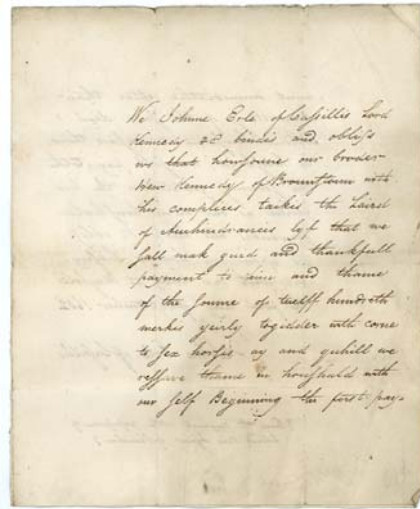 We Johnne Erle of Cassillis Lord
Kennedy &c bindis and obliss
ws that howsoune our broder
Hew Kennedy of Brounstoun with
his complices taikes the Laird
of Auchindranes lyf that we
sall mak gud and thankfull
payment to him and thame
of the soume of twelff hundreth
merkis yeirly togidder with corne
to sex horsis ay and quhill we
ressave thame in houshald with
our self Beginning the first pay-